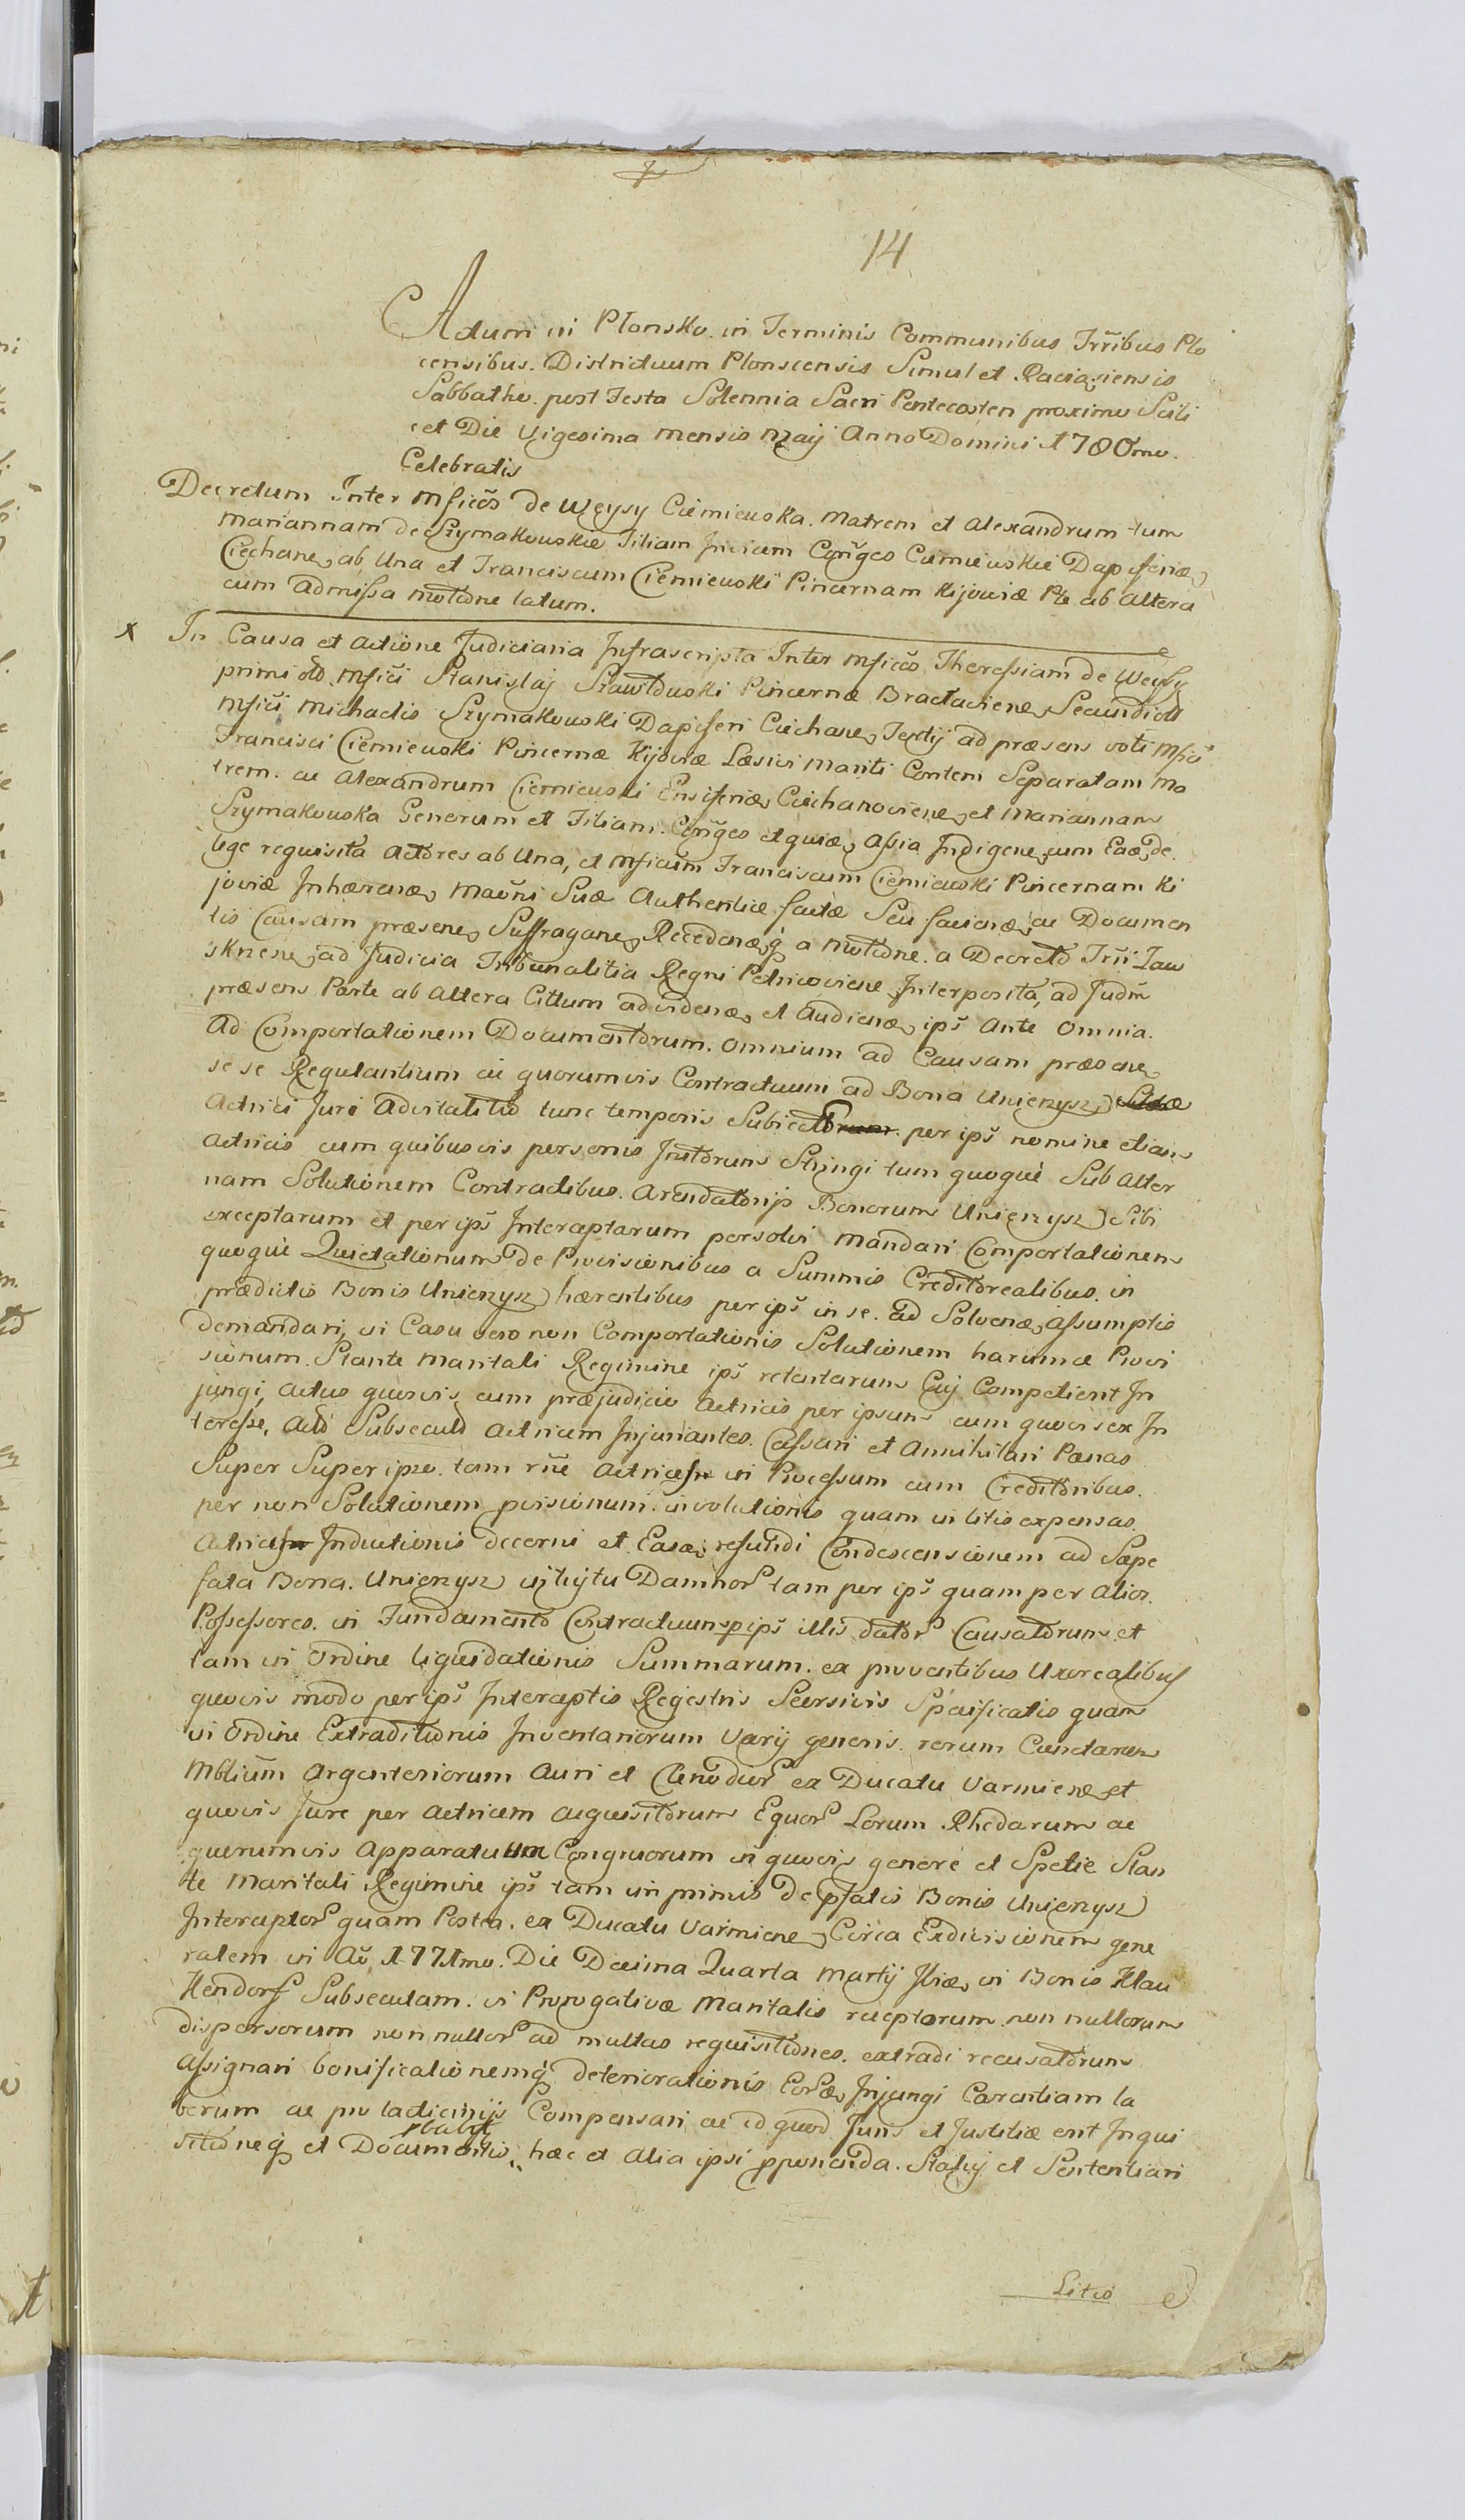 14
Actum in Plonsko in Terminis Communibus Trr̃ibus Plo
censibus. Districtuum Plonscensis Simul et Raciąziensis
Sabbatho post Festa Solennia Sacri Pentecosten proximo Scili
cet Die Vigesima Mensis Maij Anno Domini 1780mo.
Celebratis
Decretum Inter Mficos de Weysy Ciemiewska Matrem et Alexandrum tum
Mariannam de Szymakowskie Filiam Invicem Conjges Ciemiewskie Dapiferiae
Ciechane ab Una et Franciscum Ciemiewski Pincernam Kijoviae Pte ab Altera
cum Admissa Motione latum.
x In Causa et Actione Judiciaria Infrascripta Inter Mficos Theressiam de Weysy
primi olo Mfici Stanislaj Szawlowski Pincernae Braclaviene Secundi olo
Mfici Michaelis Szymakowski Dapiferi Ciechane, Tertij ad praesens voti Mfici
Francisci Ciemiewski Pincernae Kijoviae Laesivi Mariti Conten Separatam Ma
trem. ac Alexandrum Ciemiewski Ensiferiae Ciechanoviene, et Mariannam
Szymakowska Generum et Filiam. Conjges et quiae, Assia Indigene, cum Eade
lege requisita Actores ab Una, et Mficum Franciscum Ciemiewski Pincernam Ki
joviae Inhaerenae, Maoni Suae Authenticae factae Seu faciendae, ac Documen
tis Causam praesene, Suffragane, Recedenaeq a Motione. a Decreto Trii Zaw
skriene, ad Judicia Tribunalitia Regni Petricoviene Interposita, ad Judm
praesens Parte ab Altera Cittum ad videnae, et Audienae, ips Ante Omnia.
Ad Comportationem Documentorum. Omnium ad Causam praesene,
se se Regulantium ac quorumvis Contractuum ad Bona Unierzysz
Actrici Juri Advitalitio tunc temporis Subiecto per ips nomine etiam
Actricis cum quibusvis personis Initorum Stringi tum quoque Sub Alter
nam Solutionem Contractibus. Arendatorijs Bonorum Unierzysz Sibi
exceptarum et per ips Interceptarum persolvi Mandari Comportationem
quoque Quietationum De Provisionibus a Summis Creditorealibus. in
praedictis Bonis Unierzysz haerentibus per ips in se. ad Solvenae, Assumptis
Demandari, in Casu vero non Comportationis Solutionem harumce Provi
sionum. Stante Maritali Regimine ips retentarum Cuj Competient In
jungi, Actus quosvis cum praejudicio Actricis per ipsum cum quovis ex In
teresse, Acto Subsecuto Actricem Injuriantes. Cassari et Annihilari Paenas
Super Super ipso. tam rñe Actrices in Processum cum Creditoribus.
per non Solutionem pvisionum. involutionis quam in litis expensas.
Actrices Inductionis decerni et Easdem refundi Condescensionem ad Saepe
fata Bona. Unierzysz intuitu Damnor tam per ips quam per Alios.
Possessores. in Fundamento Contractuum p ips illis dator Causatorum et
tam in Ordine liquidationis Summarum. ex proventibus Uxorealibus
quovis modo per ips Interceptis Regestris Seorsivis Specificatis quam
in Ordine Extraditionis Inventariorum Varij generis. rerum Cunctarum
Mblium Argenteriorum Auri et Clenodior ex Ducatu Varmiene, et
quovis Jure per Actricem Acquisitorum Equor Lorum. Rhedarum ac
quorumvis Apparatuum Congruorum in quovis genere et Spetie Stan
te Maritali Regimine ips tam in primis De pfatis Bonis Unierzysz
Interceptor quam Postea. ex Ducatu Varmiene, Circa Exdivisionem gene
ralem in Ao 1771mo. Die Decima Quarta Martij Feriae, in Bonis Klau
Kendorf Subsecutam. in Prerogativa Maritalis receptorum non nullorum
dispersorum non nullor ad multas requisitiones. extradi recusatorum
Assignari bonificationemq Deteriorationis Eorde, Injungi Carentiam la
borum ac pro lacticinijs Compensari ac id quod Juris et Justitiae erit Inqui
sitioneq et Documentis, hac et Alia ipsi pponenda. Statuj et Sententiari
Litis